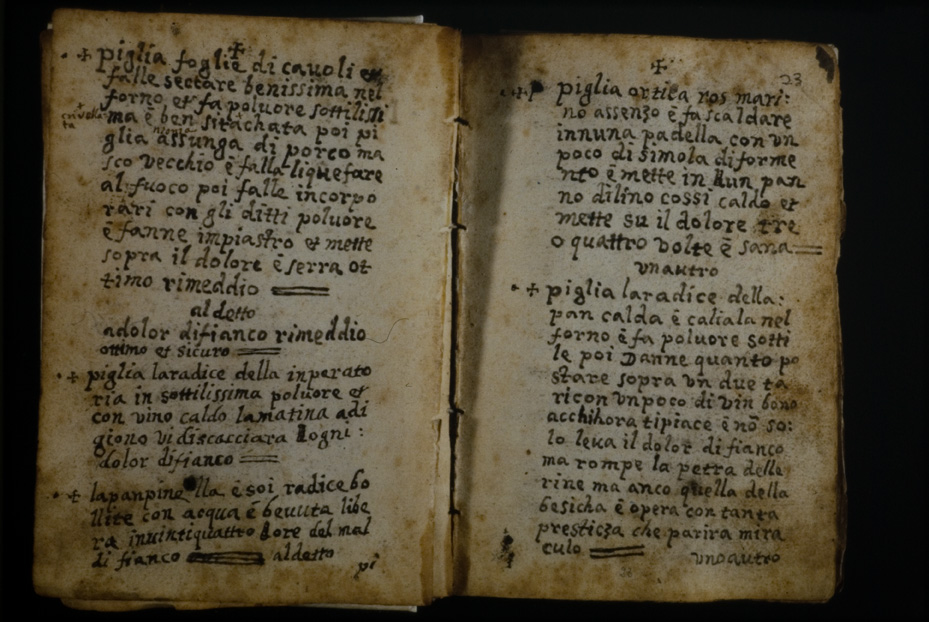 ✠
✠ piglia foglie di cavoli et
falle seccare benissima nel
forno et fa poluore sottilissi
ma ē ben sitachata poi pi
crivella
ta
glia assunga di porco ma
sco vecchio ē falla liquefare
al fuoco poi falle incorpo
rari con gli ditti poluore
ē fanne impiastro et mette
sopra il dolore ē serra ot
timo rimeddio
al detto
adolor difianco rimeddio
ottimo et sicuro
✠ piglia laradice della inperato
ria in sottilissima poluore et
con vino caldo lamatina adi
giono vi discacciara logni :
dolor difianco
✠ lapanpinella ē soi radice bo
llite con acqua ē beuuta libe
ra inuintiquattro hore del mal
di fianco aldetto
pi
✠
23
✠ piglia ortica ros mari:
no assenzo ē fa scaldare
innuna padella con vn
poco di simola di forme
nto ē mette in hun pan
no dilino cossi caldo et
mette su il dolore tre
o quattro volte ē sana
vnautro
✠ piglia laradice della:
pan calda ē caliala nel
forno ē fa poluore sotti
le poi Danne quanto po
stare sopra vn due ta
ricon vn poco di vin bono
acchihora tipiace ē nō so:
lo leua il dolor di fianco
ma rompe la petra delle
rine ma anco quella della
besicha ē opera con tanta
presticza che parira mira
culo vnoautro